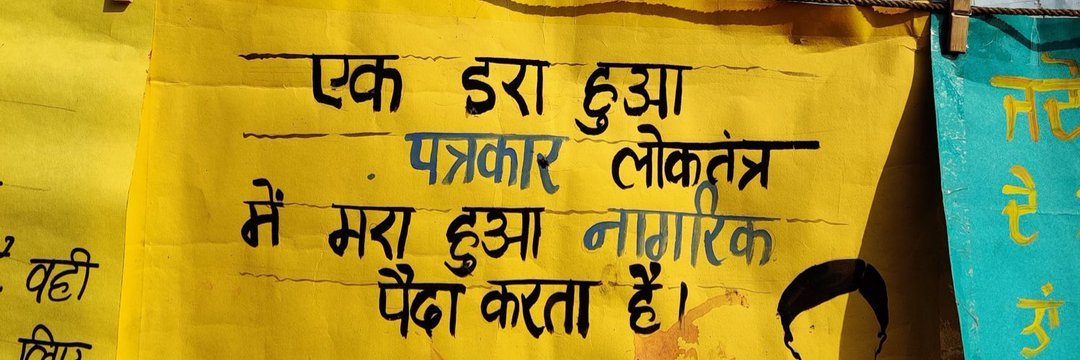 एक डरा हुआ
पत्रकार लोकतंत्र
में मरा हुआ नागरिक
पैदा करता है।
वही
लिए
ਦੇ